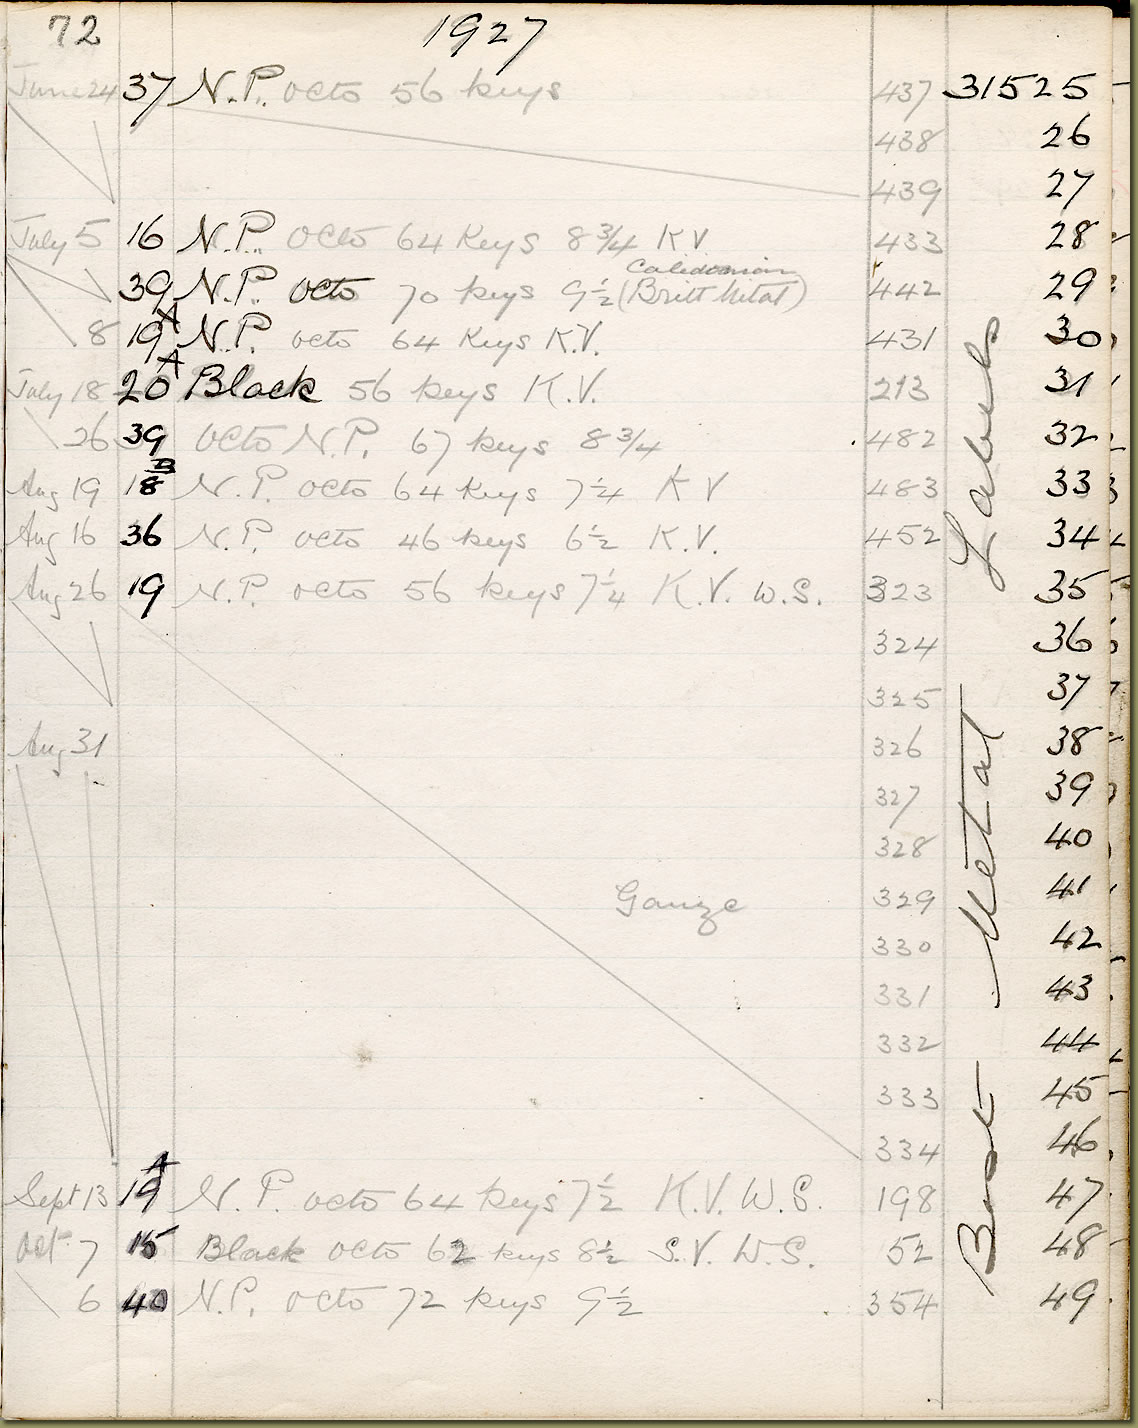 72 1927
June 24 37 N.P. octo 56 keys 437 31525
438 26
439 27
July 5 16 N.P. octo 64 Keys 8 3/4 K V 433 28
Caledonian
39 N.P. octo 70 keys 9 1/2 (Britt Metal) 442 29
8 19A N.P. octo 64 Keys K.V. 431 30
July 18 20A Black 56 keys K.V. 213 31
26 39 octo N.P. 67 keys 8 3/4 482 32
Aug 19 18B N.P. octo 64 Keys 7 1/4 K V 483 33
Aug 16 36 N.P. octo 46 keys 6 1/2 K.V. 452 34
Aug 26 19 N.P. octo 56 keys 7 1/4 K.V. W.S. 323 35
324 36
325 37
Aug 31 326 38
327 39
328 40
Gauze 329 41
330 42
331 43
332 44
333 45
334 46
Sept 13 19A N.P. octo 64 keys 7 1/2 K.V. W.S. 198 47
Oct 7 15 Black octo 62 keys 8 1/2 S.V. W.S. 52 48
6 40 N.P. octo 72 keys 9 1/2 354 49
Best Metal Labels